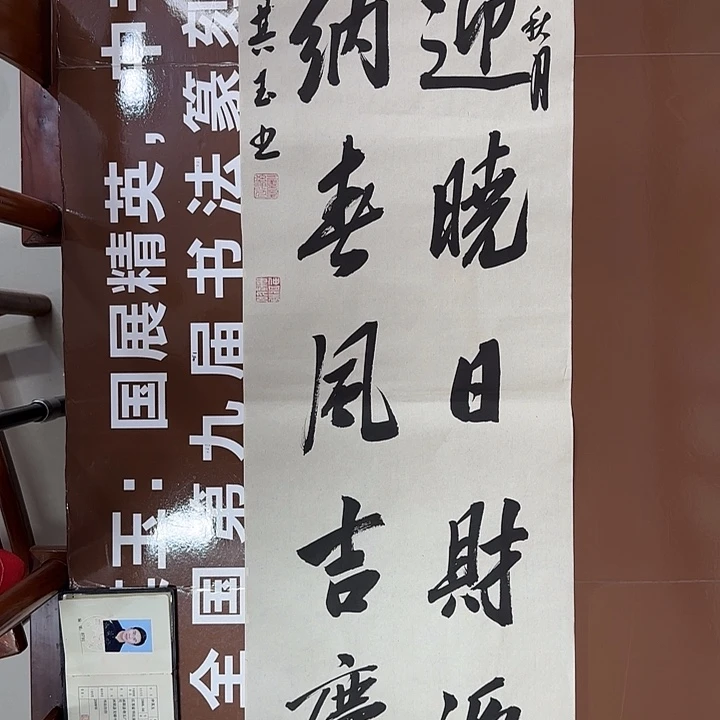 秋月
迎曉日財源
納春風吉慶
其玉书
王：国展精英，中
全国第九届书法篆刻